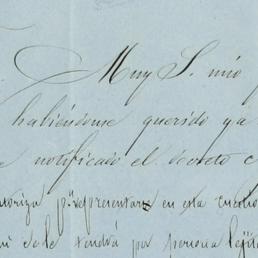 Muy S. mio
habiéndome querido ya
notificado el decreto
autoriza p.ª representar en esta cuestion
vendrá por persona legít